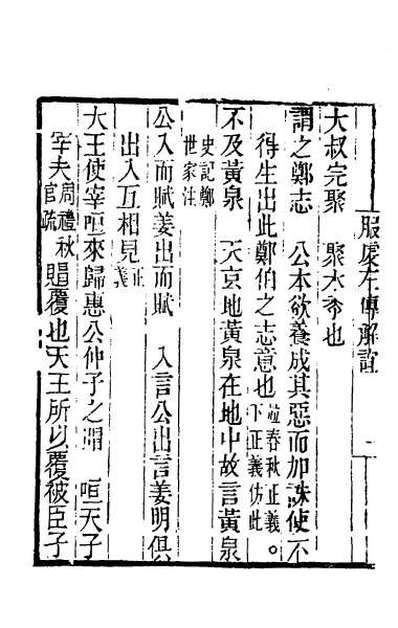 服虔左傳解誼 一
大叔完聚 聚禾黍也
謂之鄭志 公本欲養成其惡而加誅使不
得生出此鄭伯之志意也並春秋正義下正義仿此。
不及黃泉 天玄地黃泉在地中故言黃泉
史記鄭世家注
公入而賦姜出而賦 入言公出言姜明俱
出入互相見正義
天王使宰咺來歸惠公仲子之賵 咺天子
宰夫周禮秋官疏 賵覆也天王所以覆被臣子